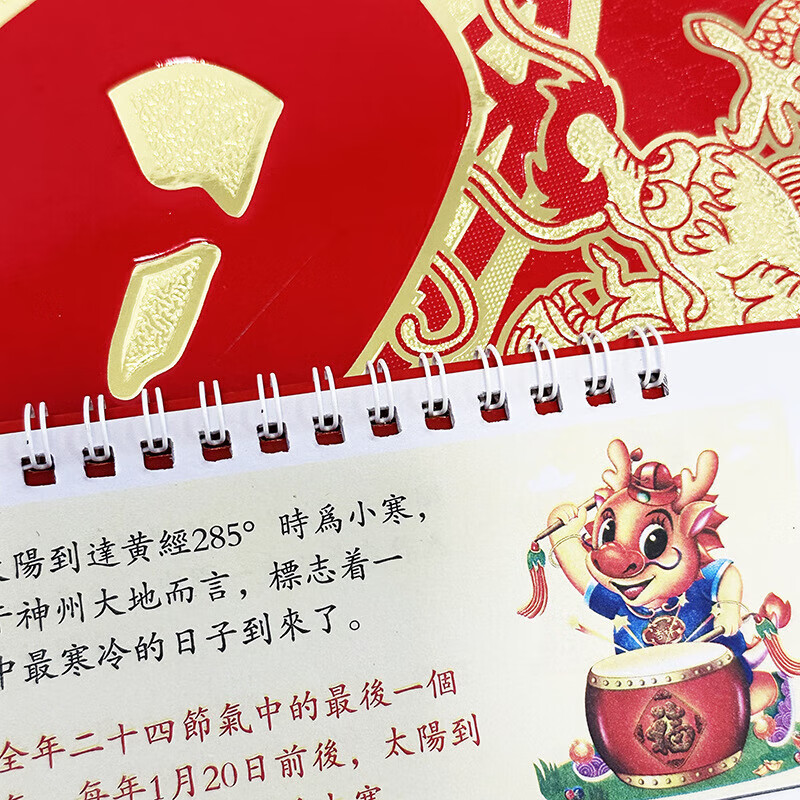 陽到達黃經285°時爲小寒，
神州大地而言，標志着一
中最寒冷的日子到來了。
全年二十四節氣中的最後一個
每年1月20日前後，太陽到
福